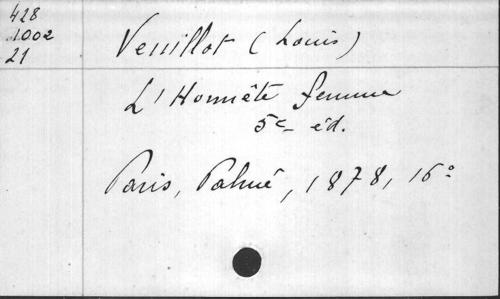 428
1002
21
Veuillot (Louis)
L'Honnête femme
5e éd.
Paris, Palmé, 1878, 16°